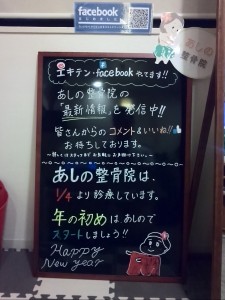 facebook
あしの整骨院
エキテン・facebookやってます!!
あしの整骨院の
「最新情報」を発信中!!
皆さんからのコメント&いいね!!
お待ちしております。
あしの整骨院は、
1/4より診療しています。
年の初めは、あしので
スタートしましょう!!
Happy
New year